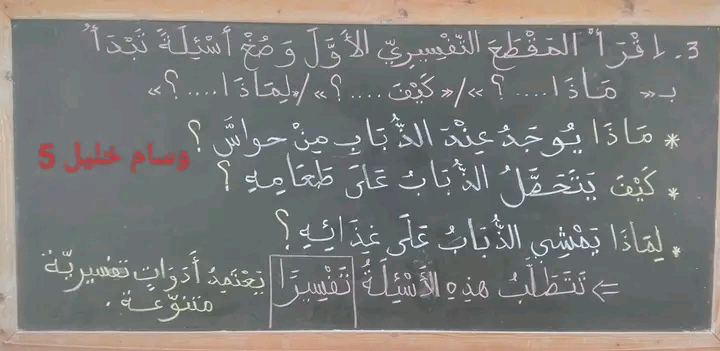 3. اِقْرَأْ المَقْطَعَ التَّفْسِيرِيّ الأَوَّلَ وَصُغْ أَسْئِلَةً تَبْدَأُ
بـ « مَاذَا .... ؟ »/« كَيْفَ .... ؟ »/« لِمَاذَا .... ؟ »
* مَاذَا يُوجَدُ عِنْدَ الذُّبَابِ مِنْ حواسَّ ؟
وسام خليل 5
* كَيْفَ يَتَحَصَّلُ الذُّبَابُ عَلَى طَعَامِهِ ؟
* لِمَاذَا يَمْشِي الذُّبَابُ عَلَى غِذَائِهِ ؟
⇐ تَتَطَلَّبُ هذِهِ الأَسْئِلَةُ تَفْسِيرًا يَعْتَمِدُ أَدَوَاتٍ تفسيريّة
متنوّعة .